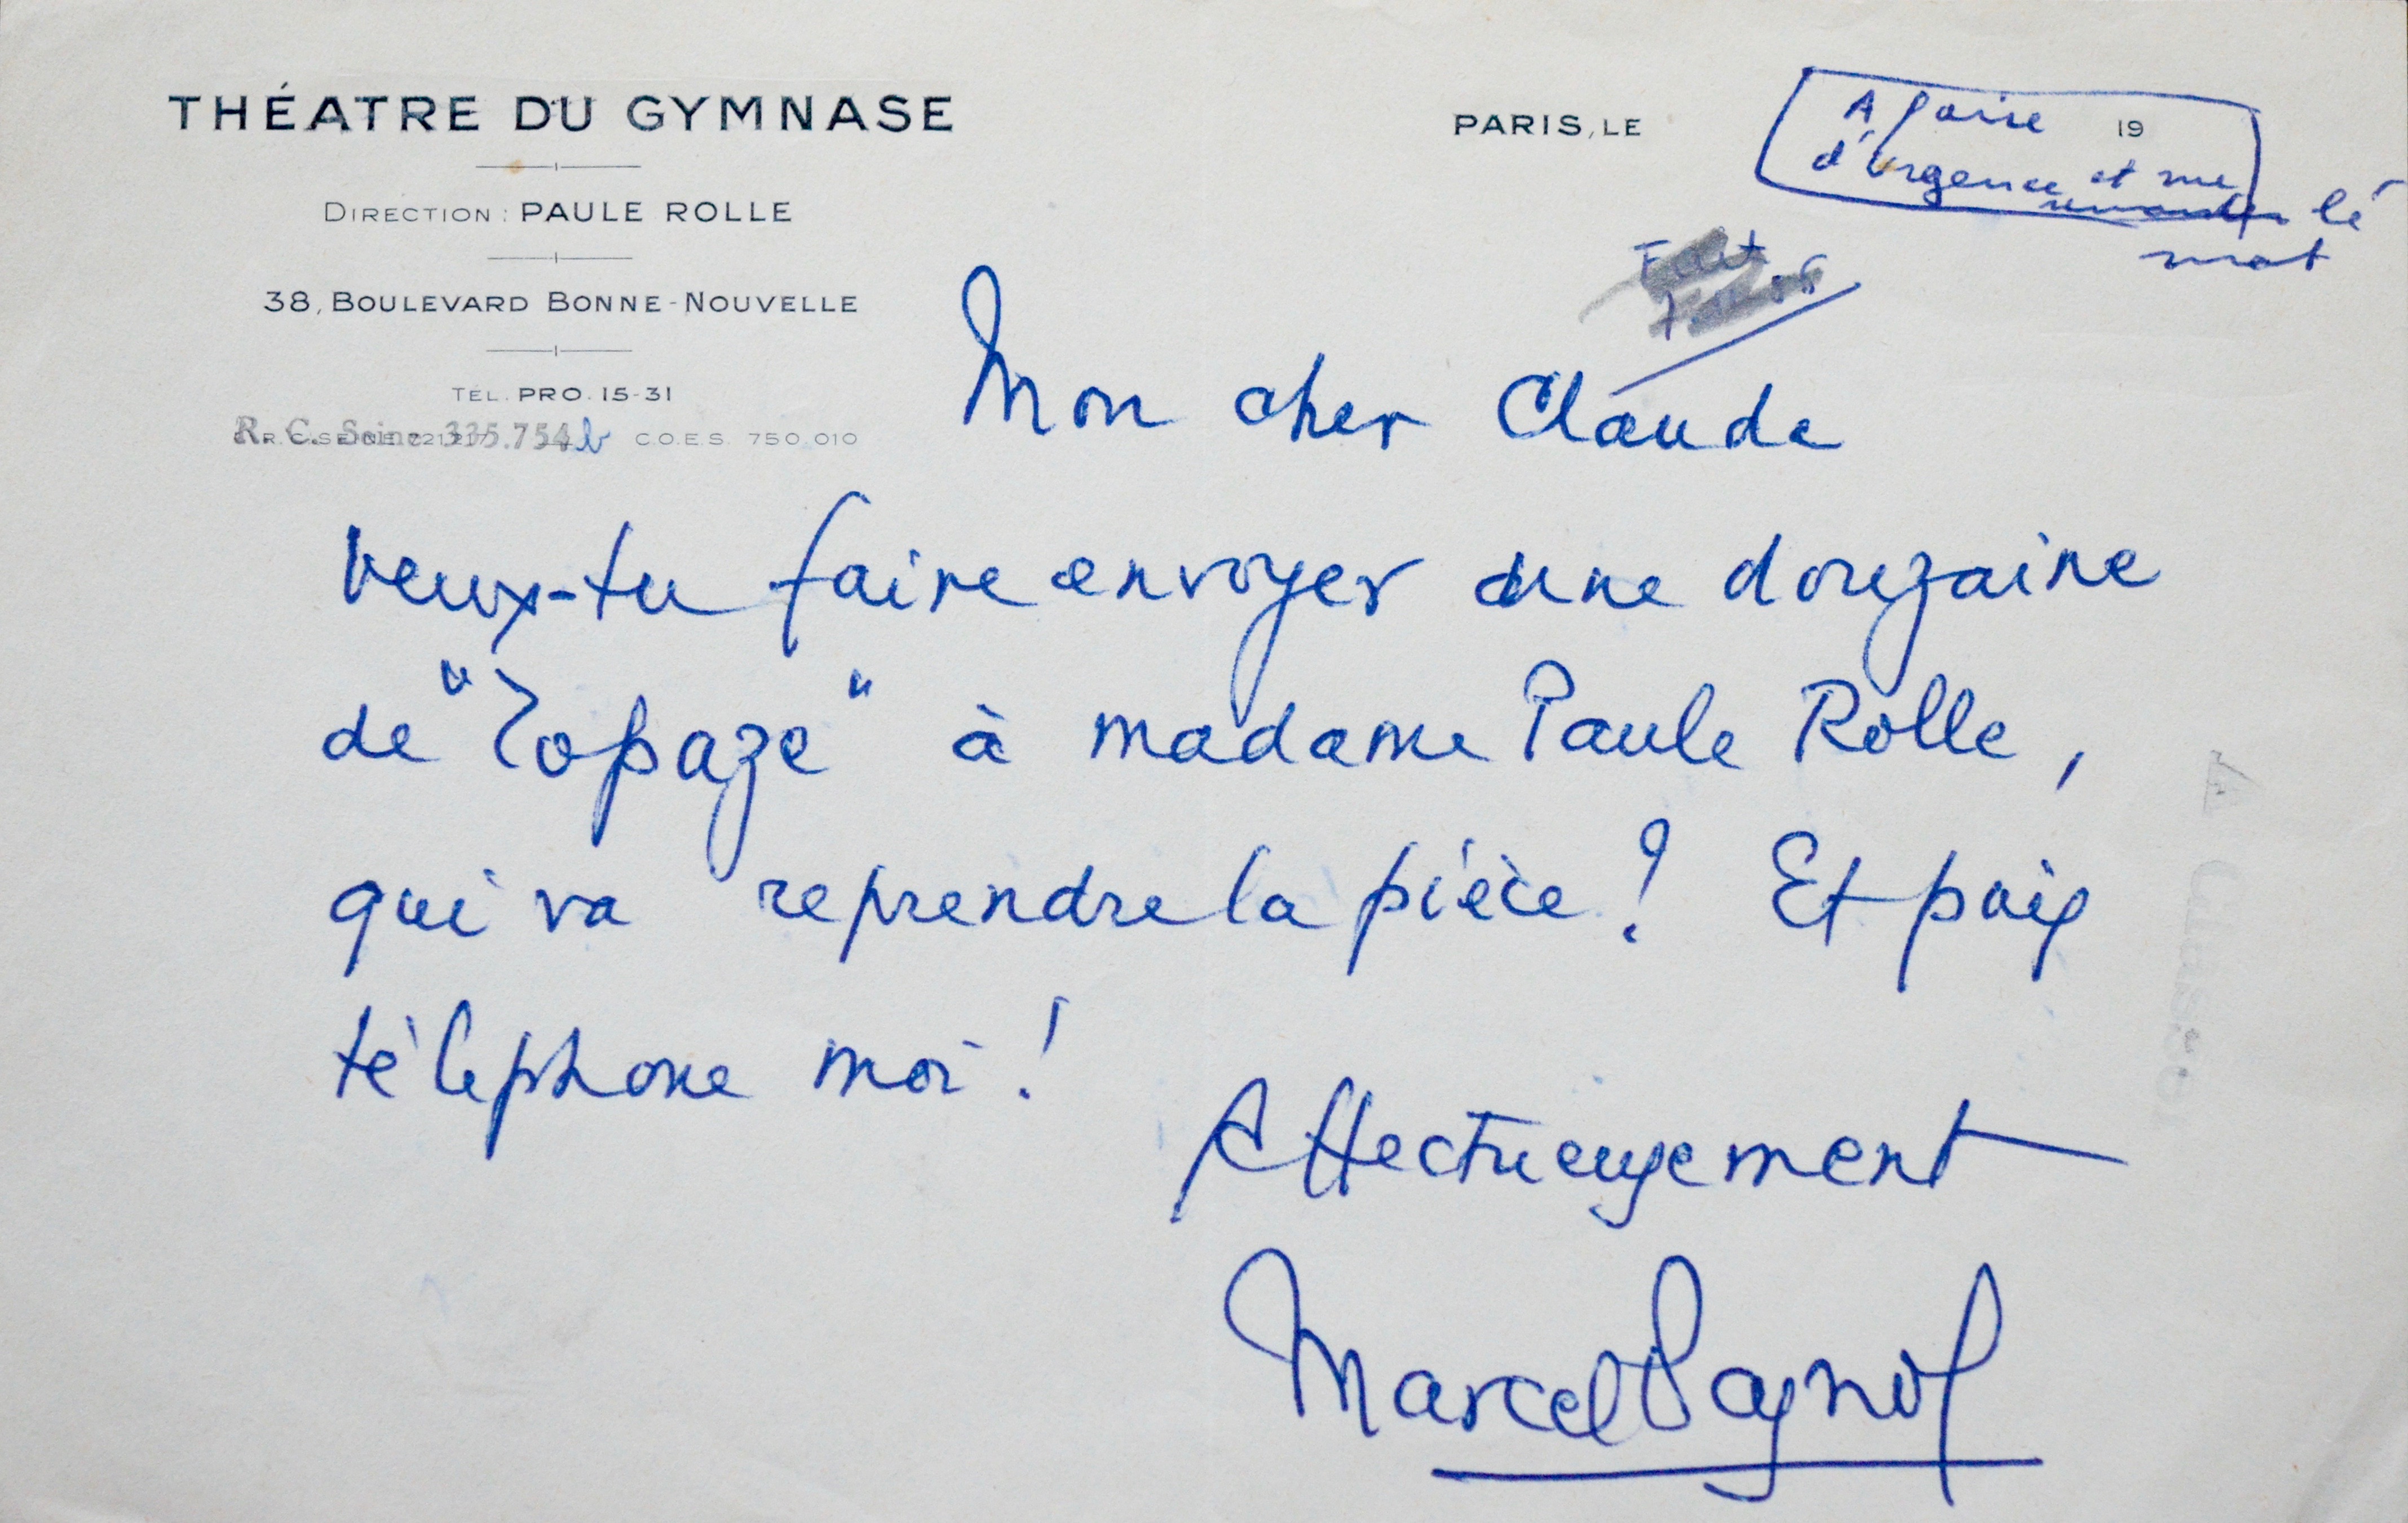 THÉATRE DU GYMNASE
DIRECTION : PAULE ROLLE
38, BOULEVARD BONNE-NOUVELLE
TÉL. PRO. 15-31
R. C. Seine 335.754 b C.O.E.S. 750.010
PARIS, LE 19
A faire
d'urgence et me
remonter le
mot
Fait
Mon cher Claude
veux-tu faire envoyer une douzaine
de "Topaze" à madame Paule Rolle,
qui va reprendre la pièce ? Et puis
téléphone moi !
Affectueusement
Marcel Pagnol